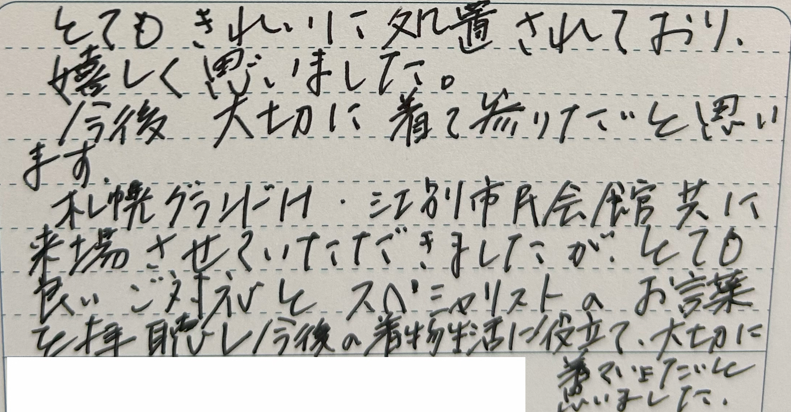 とてもきれいに処置されており、
嬉しく思いました。
今後 大切に着て参りたいと思い
ます。
札幌グランドH・江別市民会館共に
来場させていただきましたが、とても
良いご対応とスペシャリストのお言葉
を拝聴し今後の着物生活に役立て、大切に
着ていきたいと
思いました。